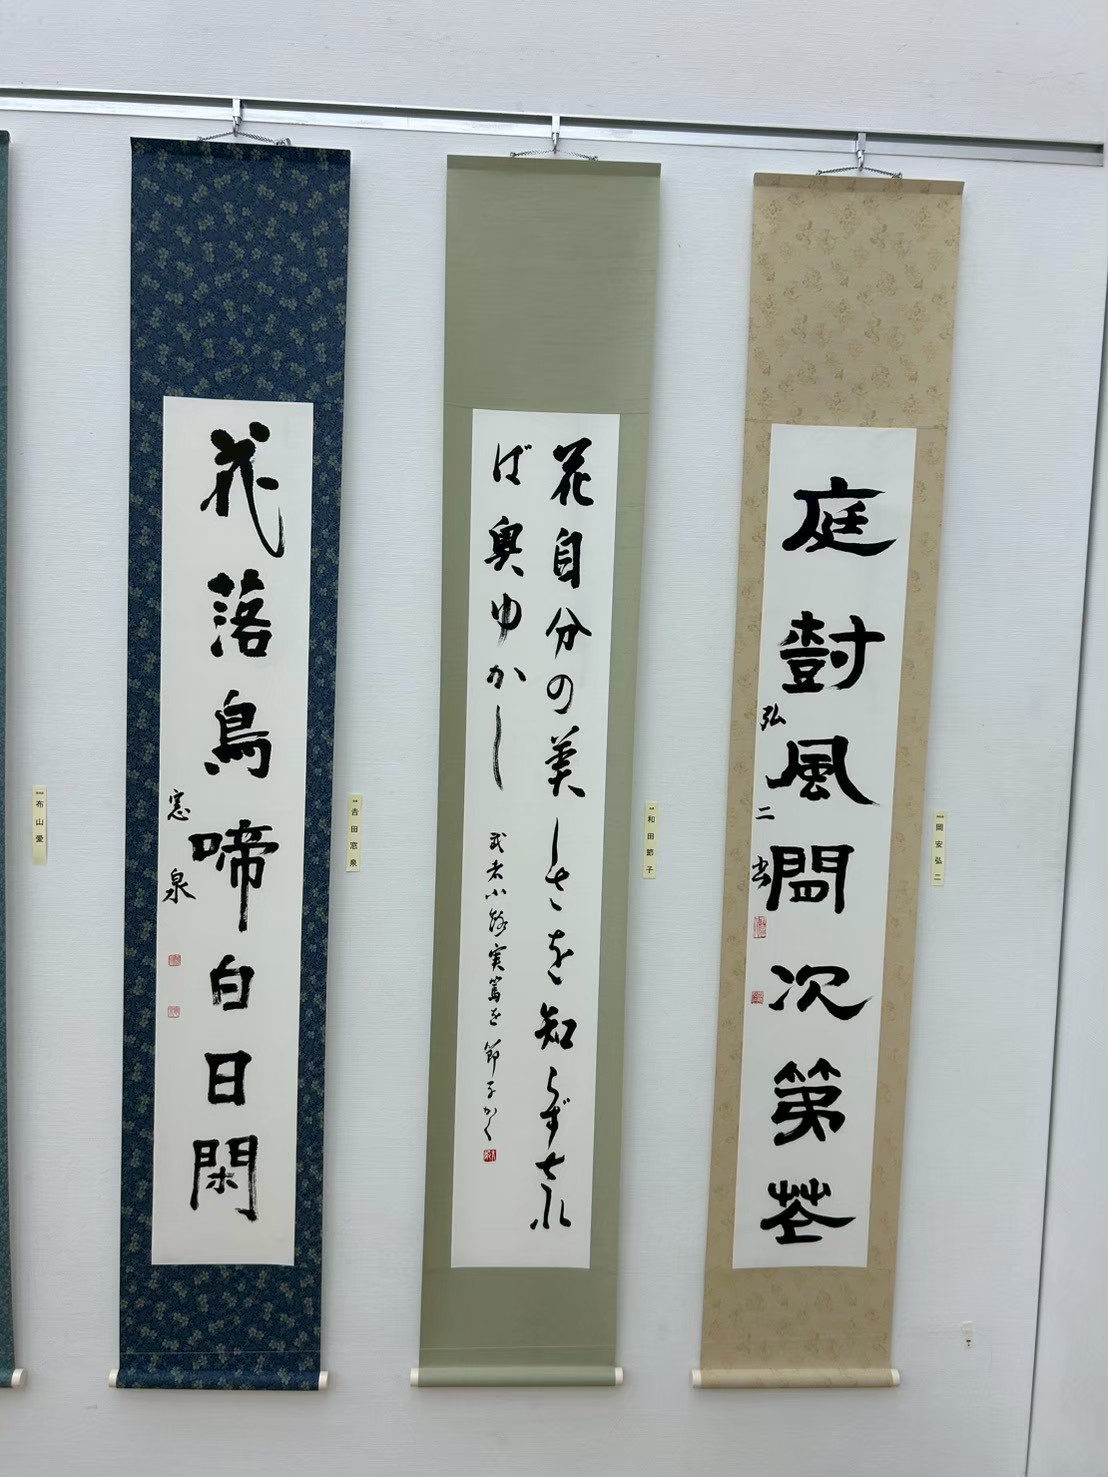 庭對風開次第花
弘二書
岡安弘二
花自分の美しさを知らずされ
ば奥ゆかし
武者小路実篤を 節子かく
和田節子
花落鳥啼白日閑
窓泉
吉田窓泉
布山愛